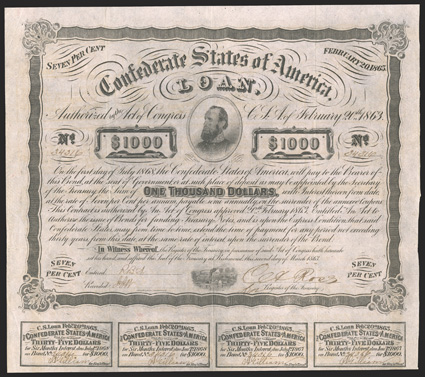 SEVEN PER CENT
FEBRUARY 20, 1863.
Confederate States of America.
LOAN,
Authorized by the Act of Congress C.S.A. of February 20th 1863.
No
$1000
$1000
No
On the first day of July 1868 the Confederate States of America, will pay to the Bearer of
this Bond, at the seat of Government or at such place of deposit as may be appointed by the Secretary
of the Treasury, the Sum of ONE THOUSAND DOLLARS, with Interest thereon from date,
at the rate of Seven per Cent per annum, payable semi-annually on the surrender of the annexed Coupons.
This Contract is authorized by the Act of Congress approved February 1863, Entitled "An Act to
authorize the issue of Bonds for funding Treasury Notes, and is upon the Express Condition that said
Confederate States may from time to time, extend the time of payment for any period not exceeding
thirty years from this date, at the same rate of interest upon the surrender of this Bond.
In Witness Whereof, the Register of the Treasury
SEVEN
PER CENT
Entered
Recorded
Register of the Treasury
SEVEN
PER CENT
C.S. LOAN FEB. 20TH 1863.
THE CONFEDERATE STATES OF AMERICA
THIRTY-FIVE DOLLARS
for Six Months Interest due
on Bond No for $1000.
C.S. LOAN FEB. 20TH 1863.
THE CONFEDERATE STATES OF AMERICA
THIRTY-FIVE DOLLARS
for Six Months Interest due
on Bond No for $1000.
C.S. LOAN FEB. 20TH 1863.
THE CONFEDERATE STATES OF AMERICA
THIRTY-FIVE DOLLARS
for Six Months Interest due
on Bond No for $1000.
C.S. LOAN FEB. 20TH 1863.
THE CONFEDERATE STATES OF AMERICA
THIRTY-FIVE DOLLARS
for Six Months Interest due
on Bond No for $1000.